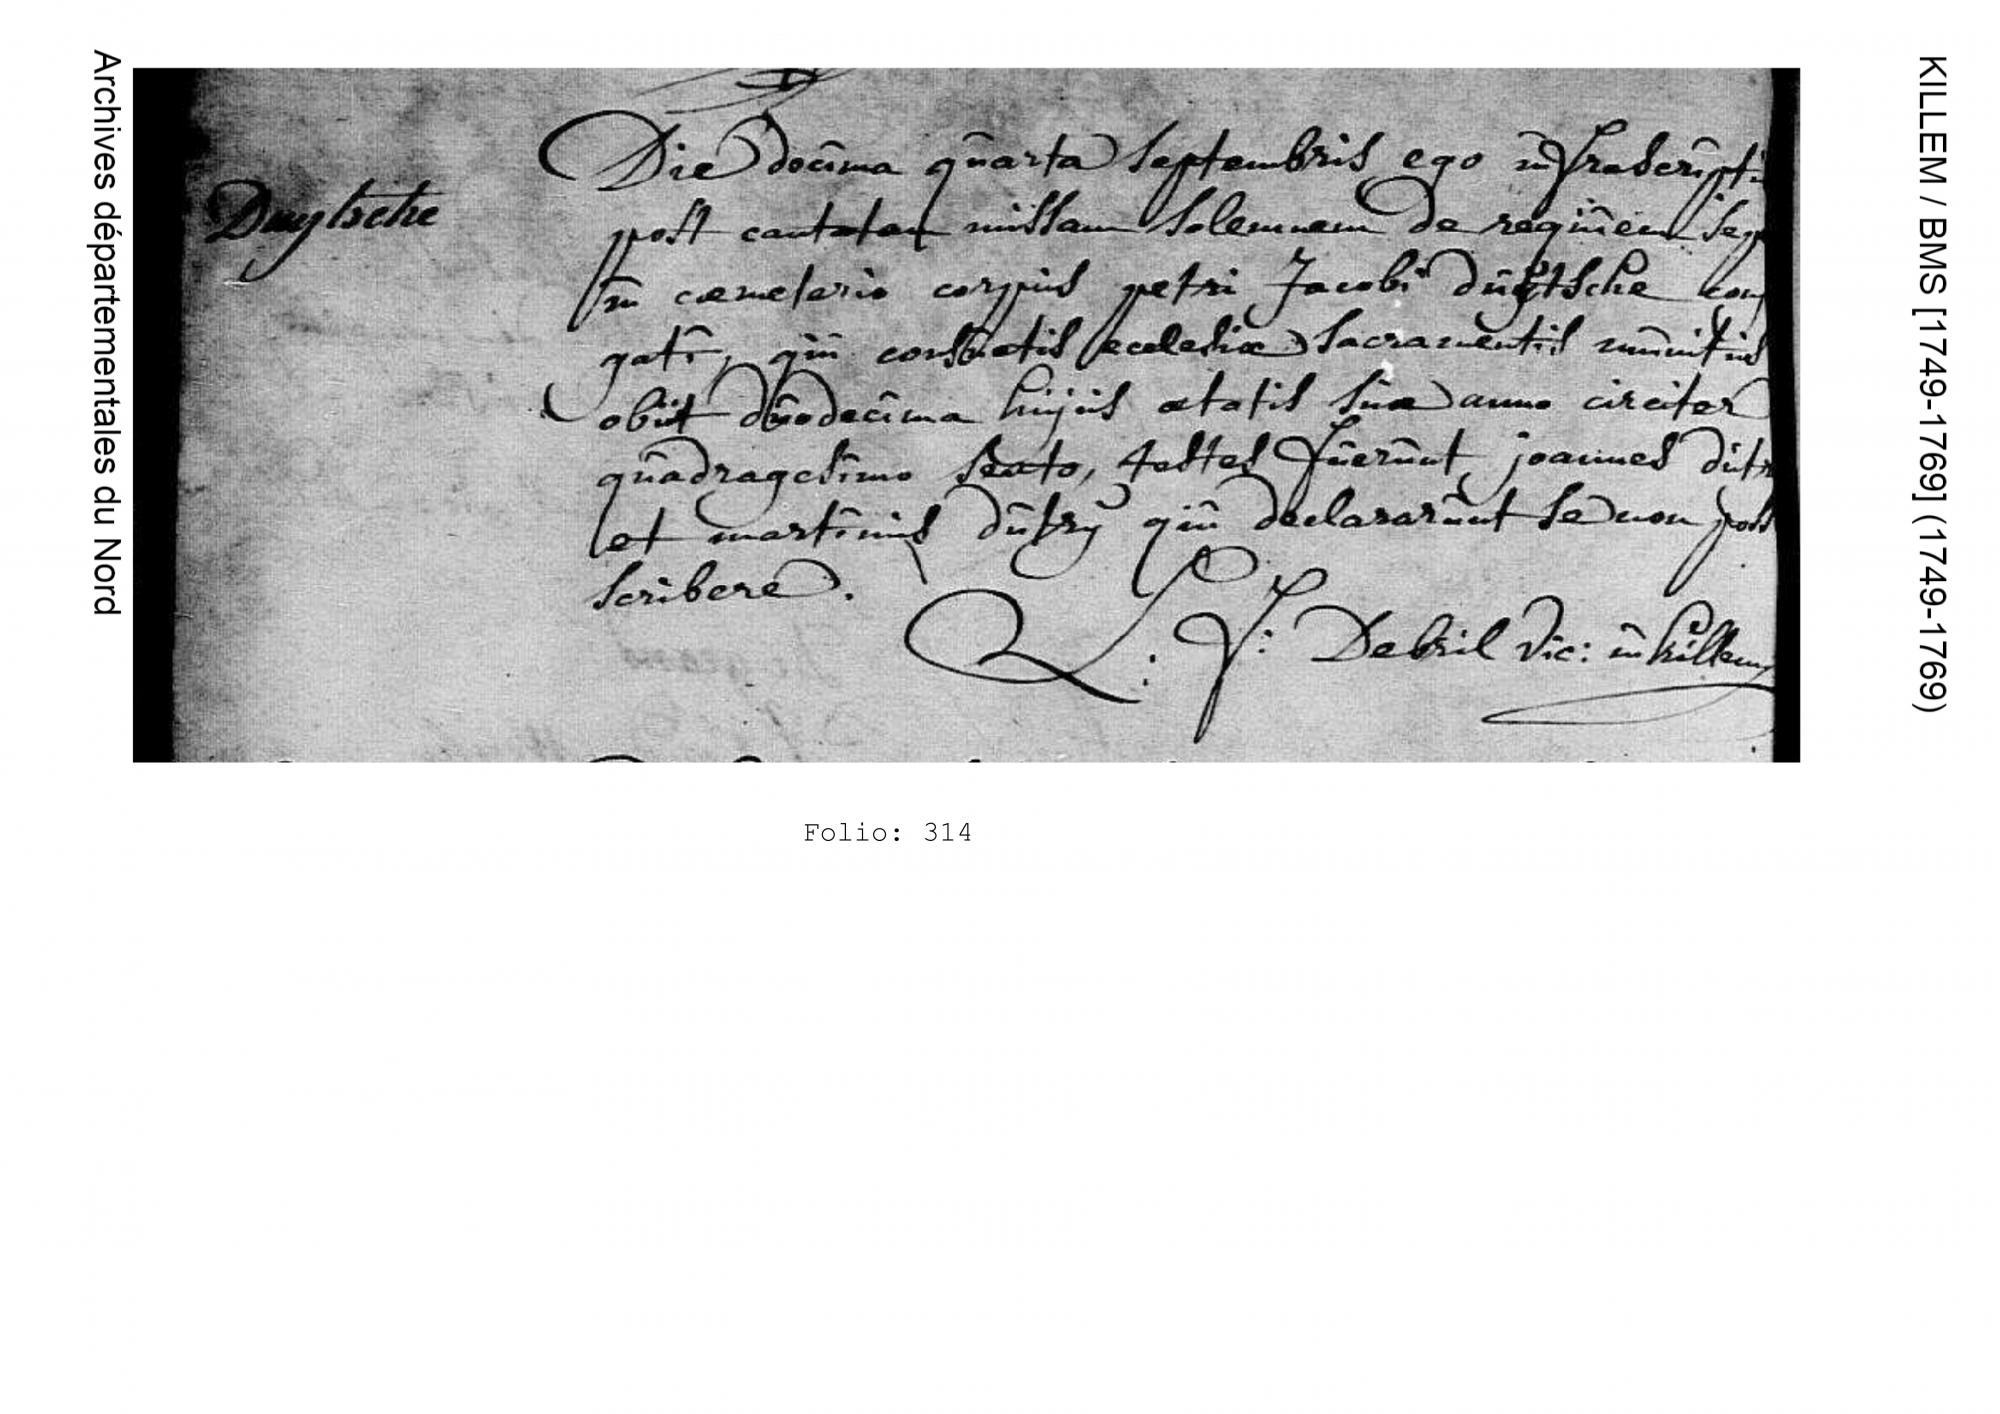 Archives départementales du Nord
KILLEM / BMS [1749-1769] (1749-1769)
Duÿtsche
Die decima quarta septembris ego infrascriptu
post cantatam missam solemnem de requiem sep
in cœmeterio corpus petri Jacobi duÿtsche conj
gati, qui consuetis ecclesiæ sacramentis munitus
obiit duodecima hujus ætatis suæ anno circiter
quadragesimo sexto, testes fuerunt joannes dut
et martinus dutrÿ qui declararunt se non poss
scribere.
L: J: Debril vic: in killem
Folio: 314